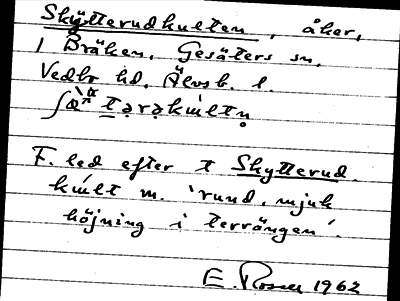 Skytterudkulten, åker,
i Bräken, Gesäters sn,
Vedbo hd, Älvsb. l.
F. led efter t Skytterud.
kúlt m. 'rund, mjuk
höjning i terrängen'.
E. Rosell 1962